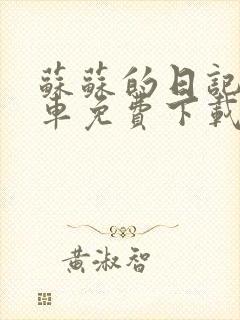 蘇蘇的日記
車免費下載
黃淑智